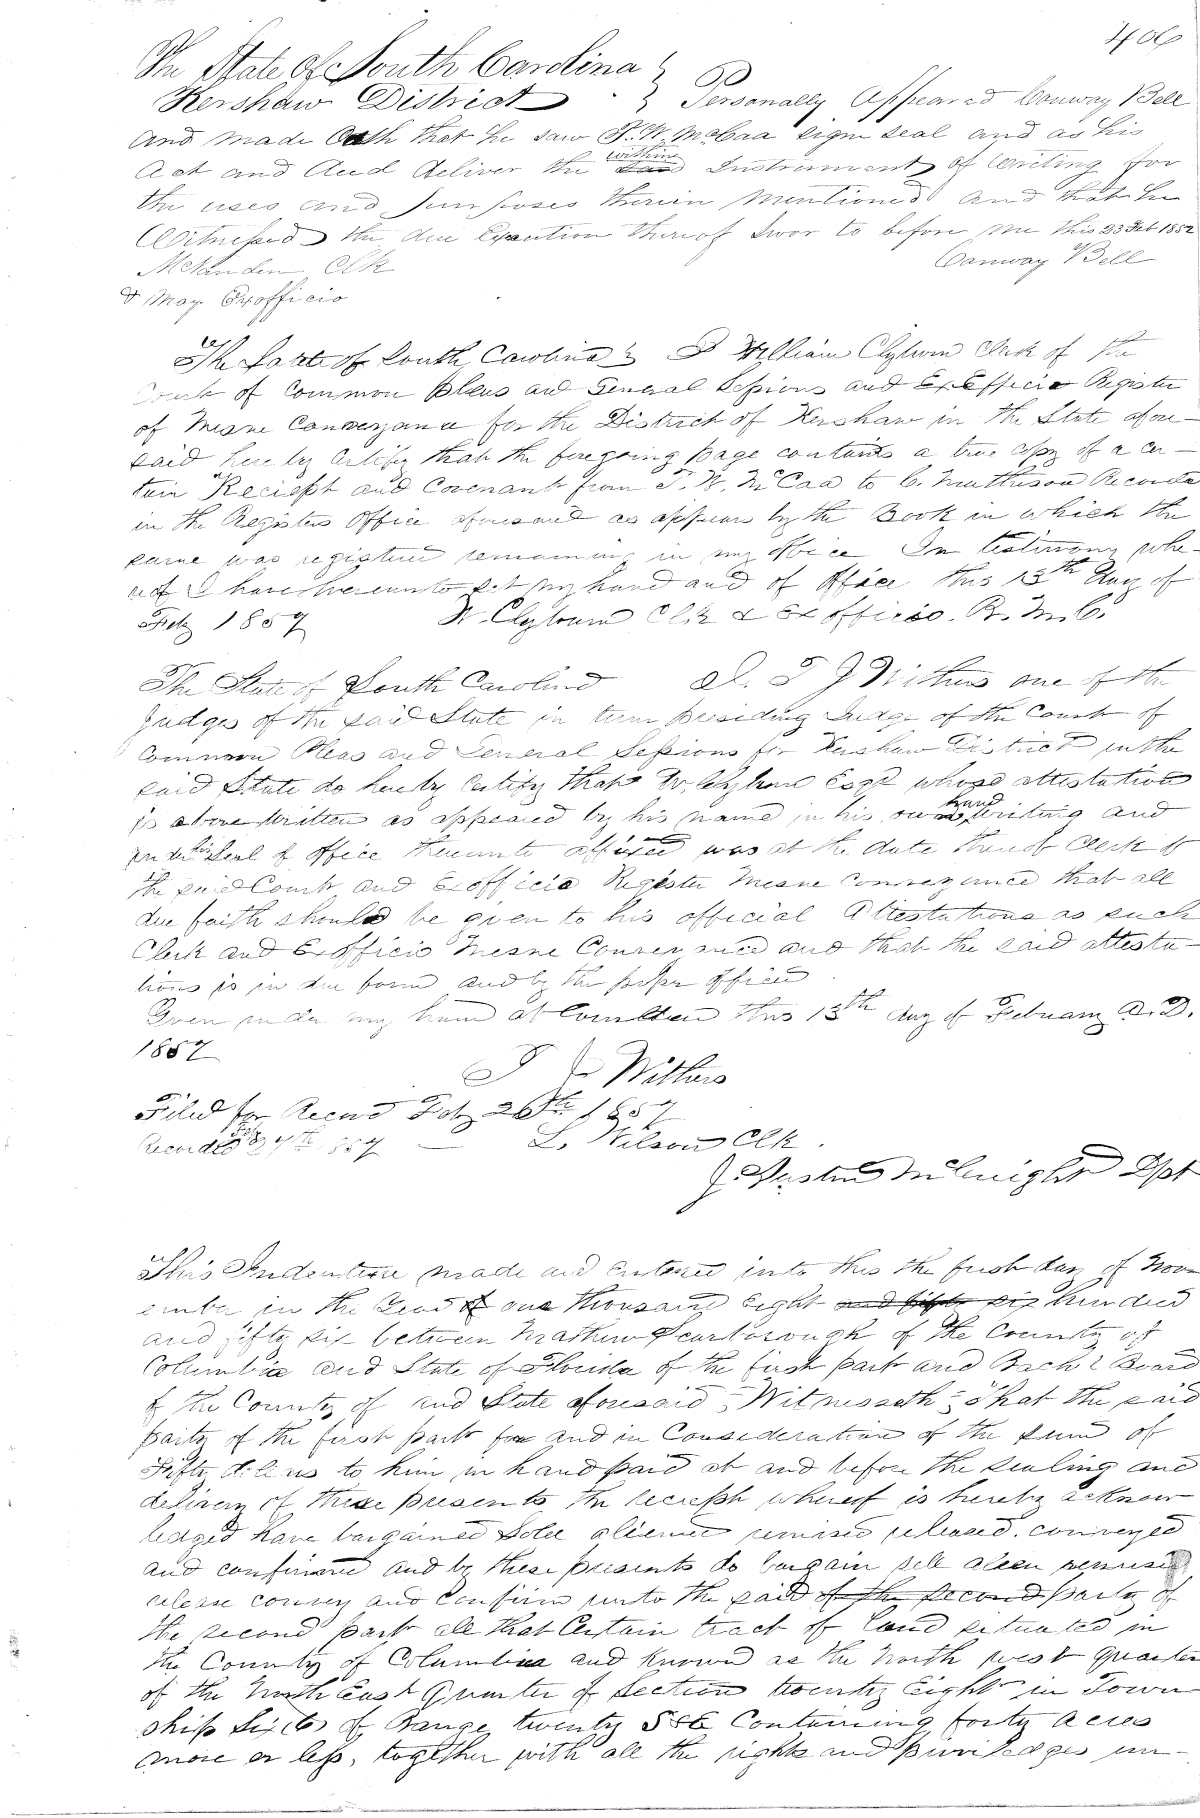 406
The State of South Carolina }
Kershaw District } Personally Appeared Conway Bell
and made Oath that he saw T. W. McCaa sign seal and as his
act and deed deliver the within Instrument of Writing for
the uses and purposes therein mentioned and that he
Witnessed the due Execution thereof Swor to before me this 23 Feb 1852
Clk Conway Bell
& Mag. Exofficio
The State of South Carolina } I William Clyburn Clerk of the
Court of Common Pleas and General Sessions and Ex Officio Register
of Mesne Conveyance for the District of Kershaw in the State afore-
said hereby certify that the foregoing page contains a true copy of a cer-
tain Reciept and Covenant from T. W. McCaa to C. Matheson Recorded
in the Registers Office aforesaid as appears by the Book in which the
same was registered remaining in my office In testimony whe-
reof I have hereunto set my hand and of office this 13th day of
Feby 1857 W. Clyburn Clk & Ex officio. R. M. C.
The State of South Carolina I. T J Withers one of the
Judges of the said State in term presiding Judge of the Court of
Common Pleas and General Sessions for Kershaw District in the
said State do hereby certify that W. Clyburn Esqr whose attestation
is above written as appeared by his name in his own hand writing and
under his Seal of office thereunto affixed was at the date thereof Clerk of
the said Court and Exofficio Register Mesne Conveyance that all
due faith should be given to his official Attestations as such
Clerk and Exofficio Mesne Conveyance and that the said attesta-
tions is in due form and by the proper officer
Given under my hand at Camden this 13th day of February A. D.
1857
T J Withers
Filed for Record Feby 26th 1857
Recorded Feby 27th 1857 — L. Wilson Clk.
J. McKnight Dpt
This Indenture made and entered into this the first day of Nov
ember in the Year of one thousand eight and fifty six hundred
and fifty six between Mathew Scarborough of the County of
Columbia and State of Florida of the first part and Board
of the County of and State aforesaid, Witnesseth, that the said
party of the first part for and in Consideration of the sum of
Fifty dollars to him in hand paid at and before the sealing and
delivery of these presents the reciept whereof is hereby acknow
ledged have bargained Sold aliened remised released. conveyed
and confirmed and by these presents do bargain sell alien remise
release convey and confirm unto the said of the second party of
the second part all that Certain tract of land situated in
the County of Columbia and known as the North west quarter
of the North East quarter of Section twenty Eight in Town
ship Six of Range twenty Containing forty acres
more or less, together with all the rights and priviledges un-